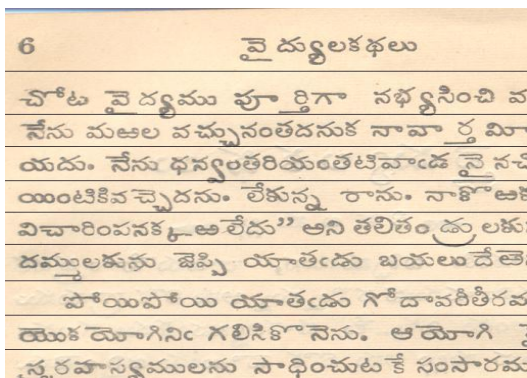 6 వైద్యులకథలు
చోట వైద్యము పూర్తిగా నభ్యసించి
నేను మఱల వచ్చునంతదనుక నావార్త
యదు. నేను ధన్వంతరియంతటివాఁడనై
యింటికివచ్చెదను. లేకున్న రాను. నాకొఱ
విచారింపనక్కఱలేదు” అని తలితండ్రులకు
దమ్ములకును జెప్పి యాతఁడు బయలుదే
పోయిపోయి యాతఁడు గోదావరీతీరవ
యొక యోగినిఁ గలిసికొనెను. ఆ యోగి
స్వరహస్యములను సాధించుటకే సంసారమ